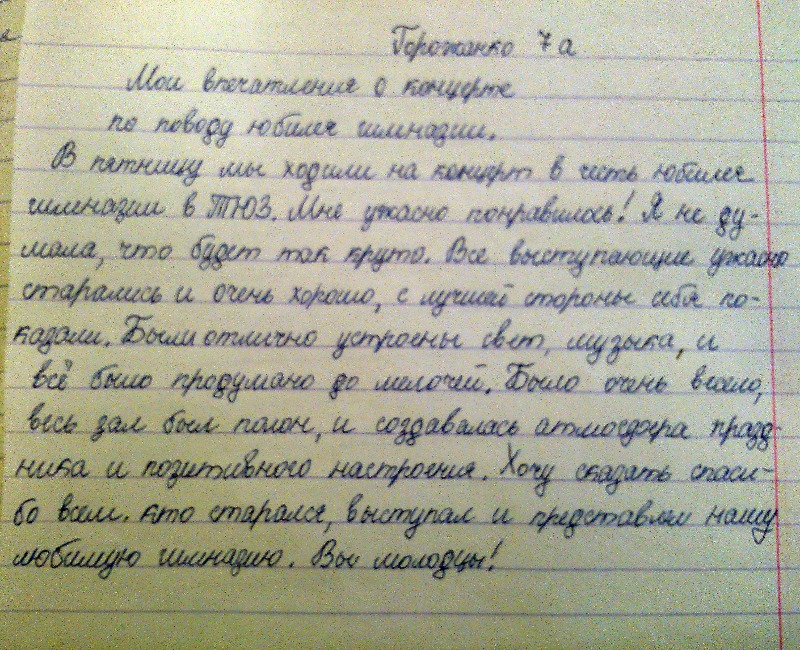 Горожанко 7 а
Мои впечатления о концерте
по поводу юбилея гимназии.
В пятницу мы ходили на концерт в честь юбилея
гимназии в ТЮЗ. Мне ужасно понравилось! Я не ду-
мала, что будет так круто. Все выступающие ужасно
старались и очень хорошо, с лучшей стороны себя по-
казали. Были отлично устроены свет, музыка, и
всё было продумано до мелочей. Было очень весело,
весь зал был полон, и создавалась атмосфера празд-
ника и позитивного настроения. Хочу сказать спаси-
бо всем. кто старался, выступал и представлял нашу
любимую гимназию. Вы молодцы!